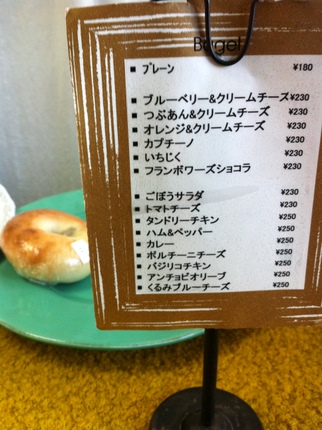 Bagel
■ プレーン ¥180
■ ブルーベリー&クリームチーズ ¥230
■ つぶあん&クリームチーズ ¥230
■ オレンジ&クリームチーズ ¥230
■ カプチーノ ¥230
■ いちじく ¥230
■ フランボワーズショコラ ¥230
■ ごぼうサラダ ¥230
■ トマトチーズ ¥230
■ タンドリーチキン ¥250
■ ハム&ペッパー ¥250
■ カレー ¥250
■ ポルチーニチーズ ¥250
■ バジリコチキン ¥250
■ アンチョビオリーブ ¥250
■ くるみブルーチーズ ¥250